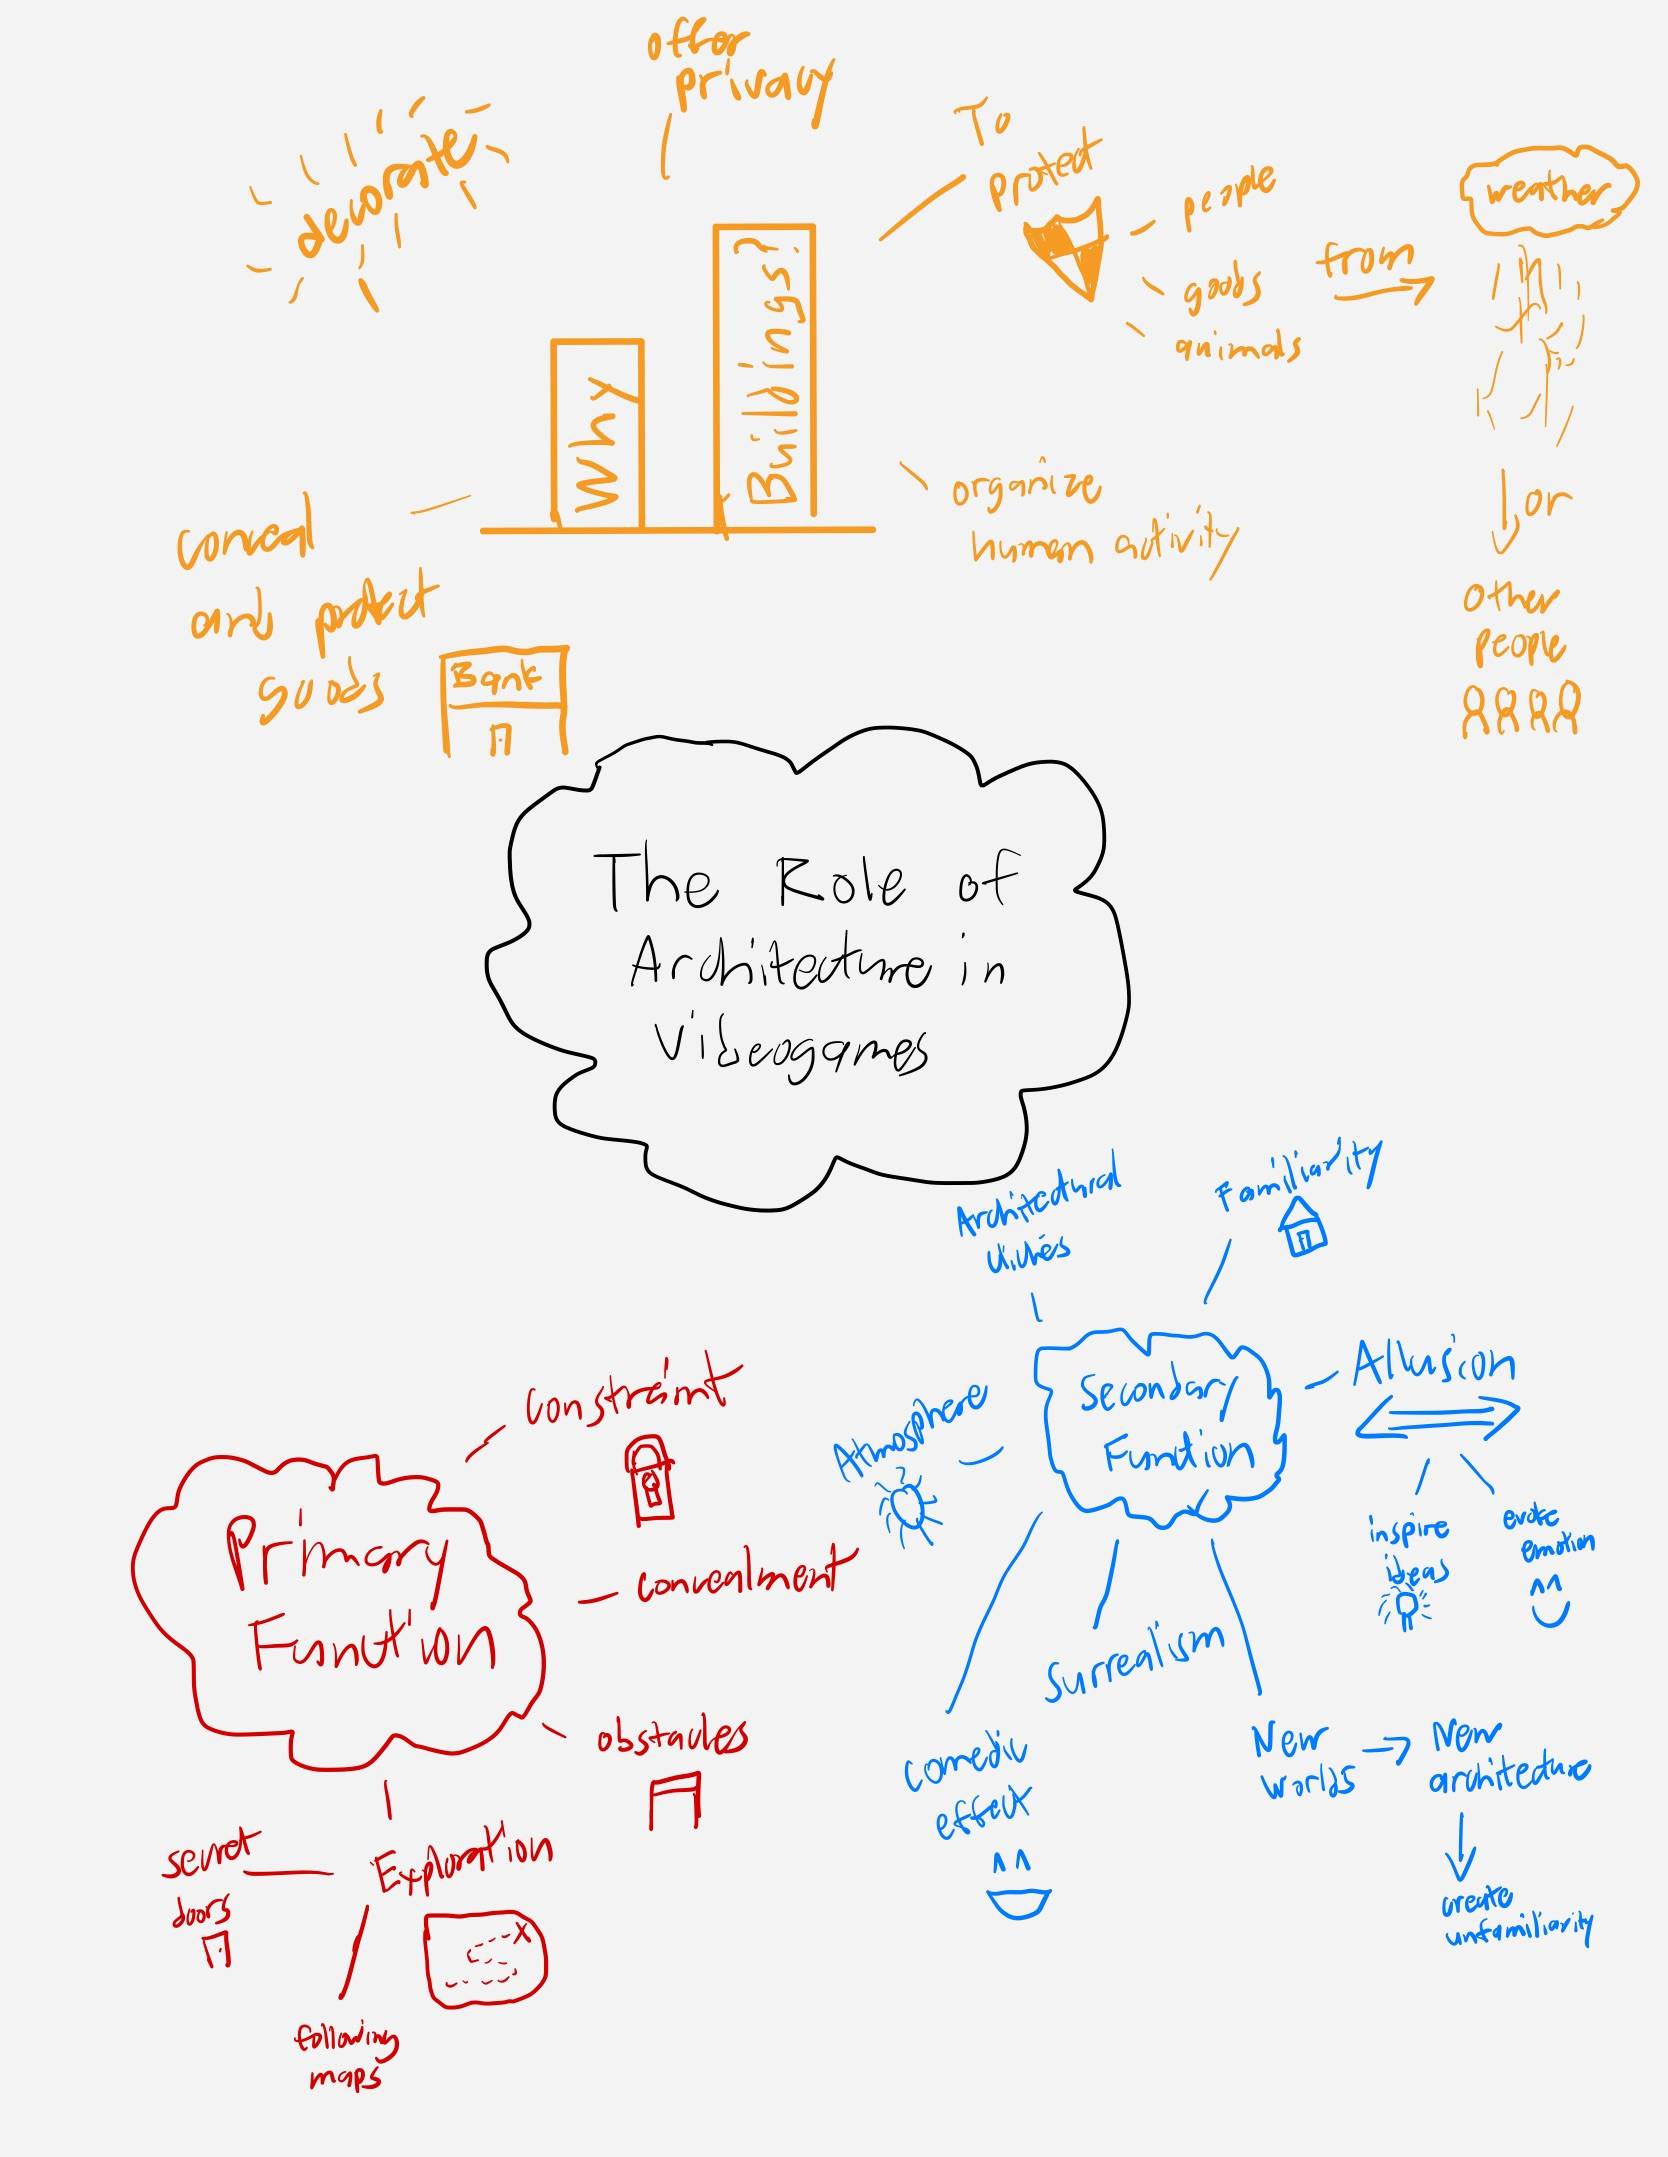 offer
privacy
decorate
To
protect
people
goods
animals
from
weather
or
other
people
Why
Buildings?
organize
human activity
conceal
and protect
goods
Bank
The Role of
Architecture in
Videogames
Architectural
clichés
Familiarity
Secondary
Function
Allusion
inspire
ideas
evoke
emotion
Atmosphere
Surrealism
comedic
effect
New
worlds
New
architecture
create
unfamiliarity
Primary
Function
constraint
concealment
obstacles
Exploration
secret
doors
X
following
maps